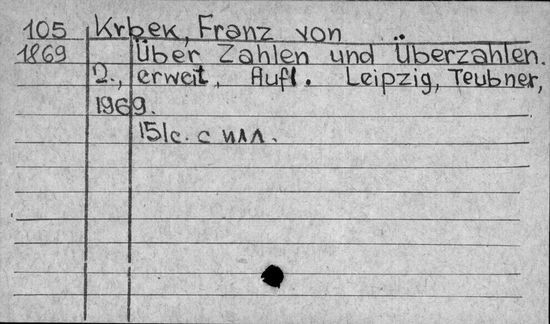 105 Krbek, Franz von
1869 Über Zahlen und Überzahlen.
2., erweit, Aufl. Leipzig, Teubner,
1969.
151c. с илл.